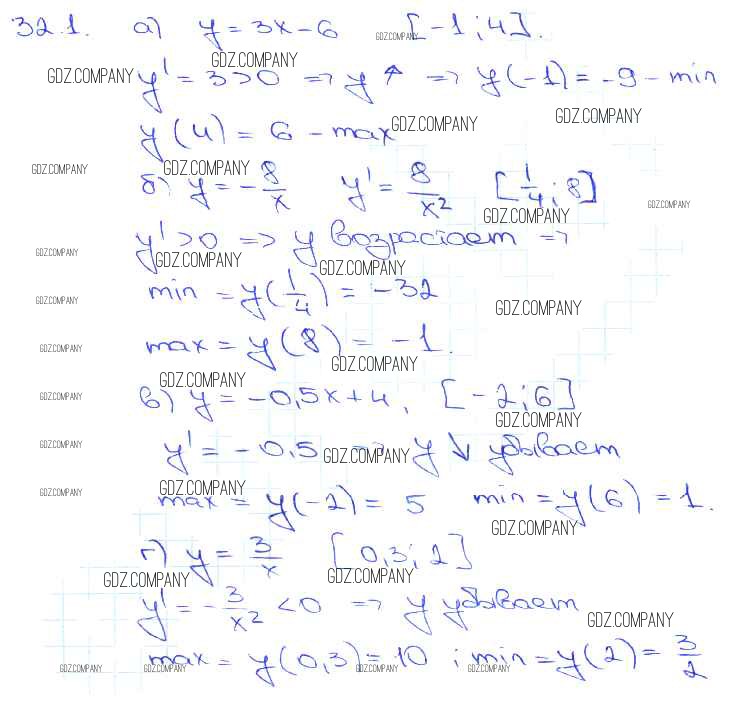 32.1. а) y = 3x - 6 [-1; 4]. GDZ.COMPANY
GDZ.COMPANY
GDZ.COMPANY y' = 3 > 0 => y ↑ => y(-1) = -9 - min
y(4) = 6 - max GDZ.COMPANY GDZ.COMPANY
GDZ.COMPANY GDZ.COMPANY
б) y = -8/x y' = 8/x² [1/4; 8]
GDZ.COMPANY GDZ.COMPANY
y' > 0 => y возрастает =>
GDZ.COMPANY GDZ.COMPANY GDZ.COMPANY
min = y(1/4) = -32
GDZ.COMPANY GDZ.COMPANY
max = y(8) = -1.
GDZ.COMPANY GDZ.COMPANY
GDZ.COMPANY
в) y = -0,5x + 4, [-2; 6]
GDZ.COMPANY GDZ.COMPANY
y' = -0,5 => y ↓ убывает
GDZ.COMPANY GDZ.COMPANY
GDZ.COMPANY
max = y(-2) = 5 min = y(6) = 1.
GDZ.COMPANY GDZ.COMPANY
г) y = 3/x [0,3; 2]
GDZ.COMPANY GDZ.COMPANY
y' = -3/x² < 0 => y убывает
GDZ.COMPANY
max = y(0,3) = 10 ; min = y(2) = 3/2
GDZ.COMPANY GDZ.COMPANY GDZ.COMPANY GDZ.COMPANY